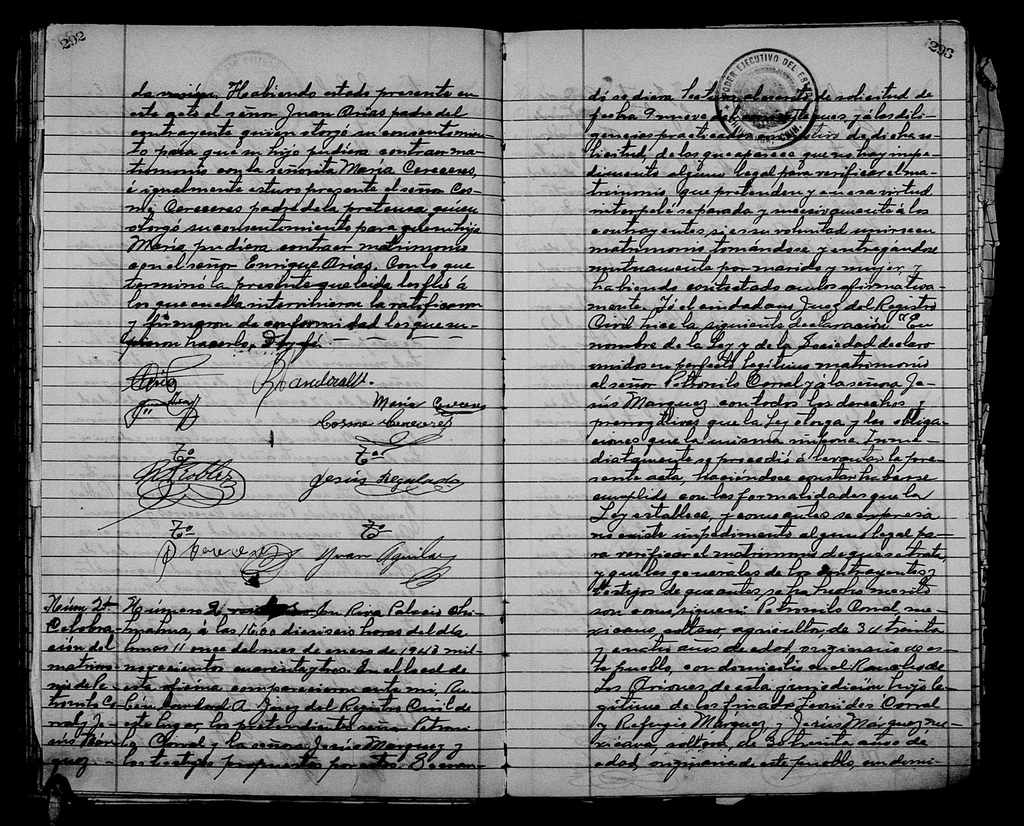 292
da misión. Habiendo estado presente en
este acto el señor Juan Arias padre del
contrayente quien otorgó su consentimien-
to para que su hijo pudiera contraer ma-
trimonio con la señorita María Cereceres,
é igualmente estuvo presente el señor Cos-
me Cereceres padre de la pretensa quien
otorgó su consentimiento para que su hija
María pudiera contraer matrimonio
con el señor Enrique Arias. Con lo que
terminó la presente que leída les fué á
los que en ella intervinieron la ratificaron
y firmaron de conformidad los que su-
pieron hacerlo. Doy fé.
María Cereceres
Cosme Cereceres
To To
Robles Jesús Regalado
To To
Juan Aguilar
Núm 2
Celebra-
ción del
matrimo-
nio de Pe-
tronilo Co-
rral y Je-
sús Már-
quez
Número 2 En Riva Palacio Chi-
huahua, á las 16.00 dieciseis horas del día
lunes 11 once del mes de enero de 1943 mil
novecientos cuarenta y tres. En el local de
esta oficina comparecieron ante mi, Ru-
bén A. Juez del Registro Civil de
este lugar, los pretendientes señor Petroni-
lo Corral y la señora Jesús Marquez y
los testigos propuestos por estos.
293
PODER EJECUTIVO DEL
dó se diera lectura de solicitud de
fecha 9 nueve del mes y á las dili-
gencias practicadas de dicha so-
licitud, de las que aparece que no hay impe-
dimento alguno legal para verificar el ma-
trimonio, que pretenden y en esa virtud
interpelé separada y sucesivamente á los
contrayentes si es su voluntad unirse en
matrimonio tomándose y entregándose
mutuamente por marido y mujer, y
habiendo contestado ambos afirmativa-
mente, Yó el ciudadano Juez del Registro
Civil hice la siguiente declaración "En
nombre de la Ley y de la Sociedad declaro
unidos en perfecto legítimo matrimonio
al señor Petronilo Corral y á la señora Je-
sús Marquez con todos los derechos y
prerrogativas que la Ley otorga y las obliga-
ciones que la misma impone. Inme-
diatamente se procedió á levantar la pre-
sente acta, haciéndose constar haberse
cumplido con las formalidades que la
Ley establece, y como antes se expresa
no existe impedimento alguno legal pa-
ra verificar el matrimonio de que se trata,
y que las generales de los contrayentes y
testigos de que antes se ha hecho mérito
son como siguen: Petronilo Corral, me-
xicano, soltero, agricultor, de 34 treinta
y cuatro años de edad, originario de es-
te pueblo, con domicilio en el Rancho de
Los Arionez de esta jurisdicción hijo le-
gítimo de los finados Leonides Corral
y Refugio Márquez y Jesús Márquez me-
xicana, soltera, de 30 treinta años de
edad, originaria de este pueblo, con domi-